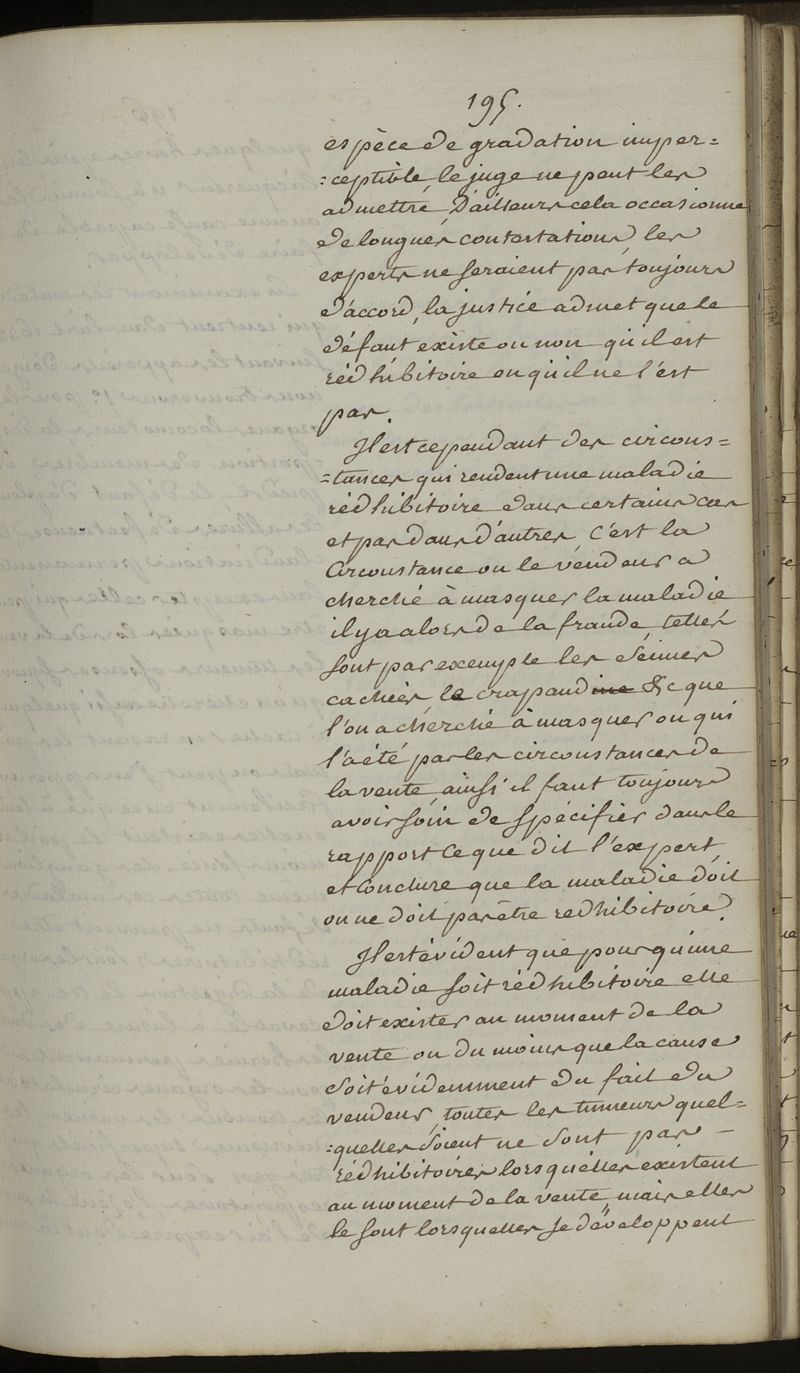 195.
espèce de gradation imper=
=ceptible le juge ne peut les
admettre, D'ailleurs cela occasionne
de longues contestations les
experts ne seraient pas toujours
d'accord, la justice admet que le
défaut existe ou non qu'il est
rédhibitoire ou qu'il ne l'est
pas.
Il est cependant des circons=
=tances qui rendent une maladie
rédhibitoire dans certains cas
et pas dans d'autres, C'est la
Circonstance ou le vendeur a
cherché à masquer la maladie
il y a alors de la fraude, telles
sont par exemple les Seimes
cachées le crapaudine &c que
l'on a cherché à masquer ou qui
l'a été par les circonstances de
la vente ainsi il faut toujours
avoir soin de spécifier dans le
rapport Ce que dit l'expert,
et Conclure que la maladie doit
ou ne doit pas être redhibitoire.
Il est évident que pour qu'une
maladie soit rédhibitoire elle
doit exister au moment de la
vente ou du moins que la cause
soit évidemment du fait du
vendeur, toutes les tumeurs quel=
=quelles soient ne sont pas —
rédhibitoires lorsqu'elles existent
au moment de la vente, mais elles
le sont lorsquelles se développent